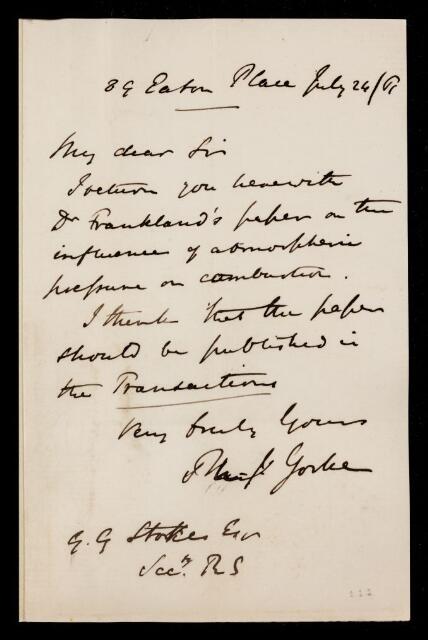 89 Eaton Place July 24/61
My dear Sir
I return you herewith
Dr Frankland's paper on the
influence of atmospheric
pressure on combustion.
I think that the paper
should be published in
the Transactions
Very truly Yours
Yorke
G. G Stokes Esqr
Secy. RS